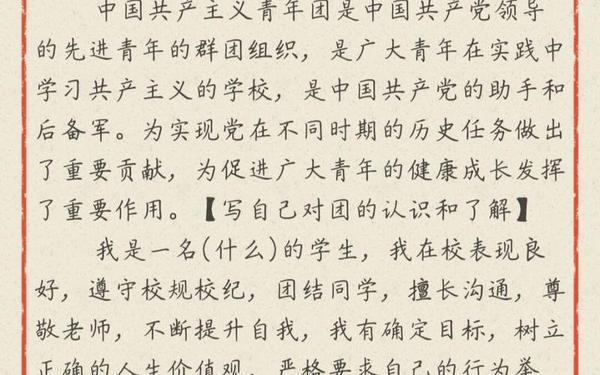 中国共产主义青年团是中国共产党领导
的先进青年的群团组织，是广大青年在实践中
学习共产主义的学校，是中国共产党的助手和
后备军。为实现党在不同时期的历史任务做出
了重要贡献，为促进广大青年的健康成长发挥
了重要作用。【写自己对团的认识和了解】
我是一名(什么)的学生，我在校表现良
好，遵守校规校纪，团结同学，擅长沟通，尊
敬老师，不断提升自我，我有确定目标，树立
正确的人生价值观，严格要求自己的行为举